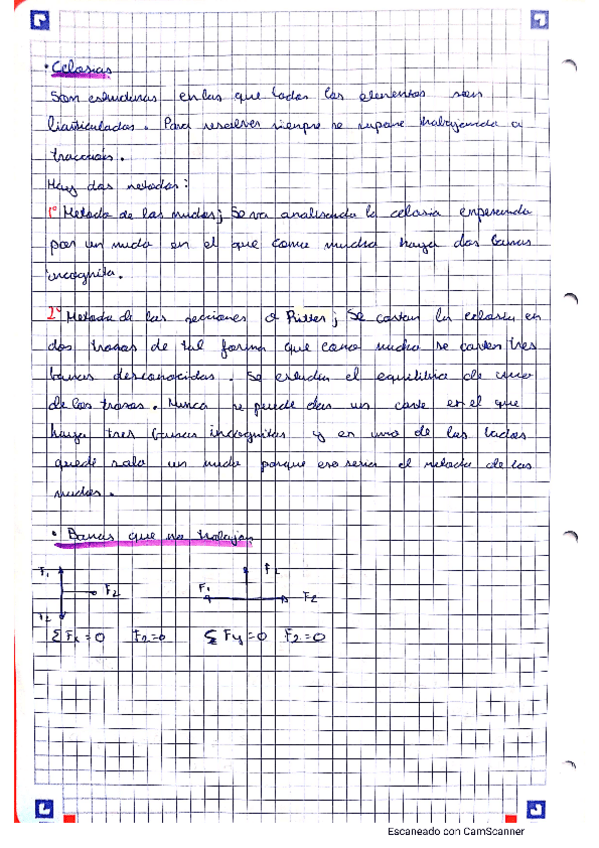 • Celosias
Son estructuras en las que todos los elementos son
biarticulados. Para resolver siempre se supone trabajando a
tracción.
Hay dos metodos:
1º Metodo de los nudos; Se va analizando la celosia empezando
por un nudo en el que como mucho haya dos barras
incognita.
2º Metodo de las secciones o Ritter; Se cortan la celosia en
dos trozos de tal forma que como mucho se corten tres
barras desconocidas. Se estudia el equilibrio de uno
de los trozos. Nunca se puede dar un corte en el que
haya tres barras incognitas y en uno de los lados
quede solo un nudo porque eso seria el metodo de los
nudos.
• Barras que no trabajan
F1 F2
F1 F2
ΣFx=0 F2=0 ΣFy=0 F2=0
Escaneado con CamScanner